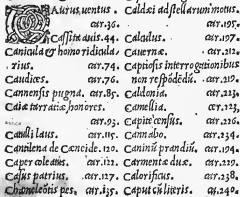 Caurus uentus.
car.36.
Cassita auis. 44.
Canicula & homo ridicula
rius. car.74.
Caudices. car.76.
Cannensis pugna. car.85.
Caiæ tatariæ, honores.
car.93.
Camilli laus. car.115.
Cantilena de Cæneide. 120.
Caper cole aures. car.122.
Casus patrius. car.127.
Chameleontis pes. car.135.
Caldæi ad stellarum motus.
car.195.
Calculus. car.197.
Cauernæ. car.212.
Captiosis interrogationibus
non respōdēdū. car.219.
Caldonia. car.223.
Camellia. car.123.
Capite census. car.226.
Cannabo. car.234.
Caninū prandiū. car.194.
Carmentæ duæ. car.229.
Calorificus. car.238.
Caput cū literis. car.240.